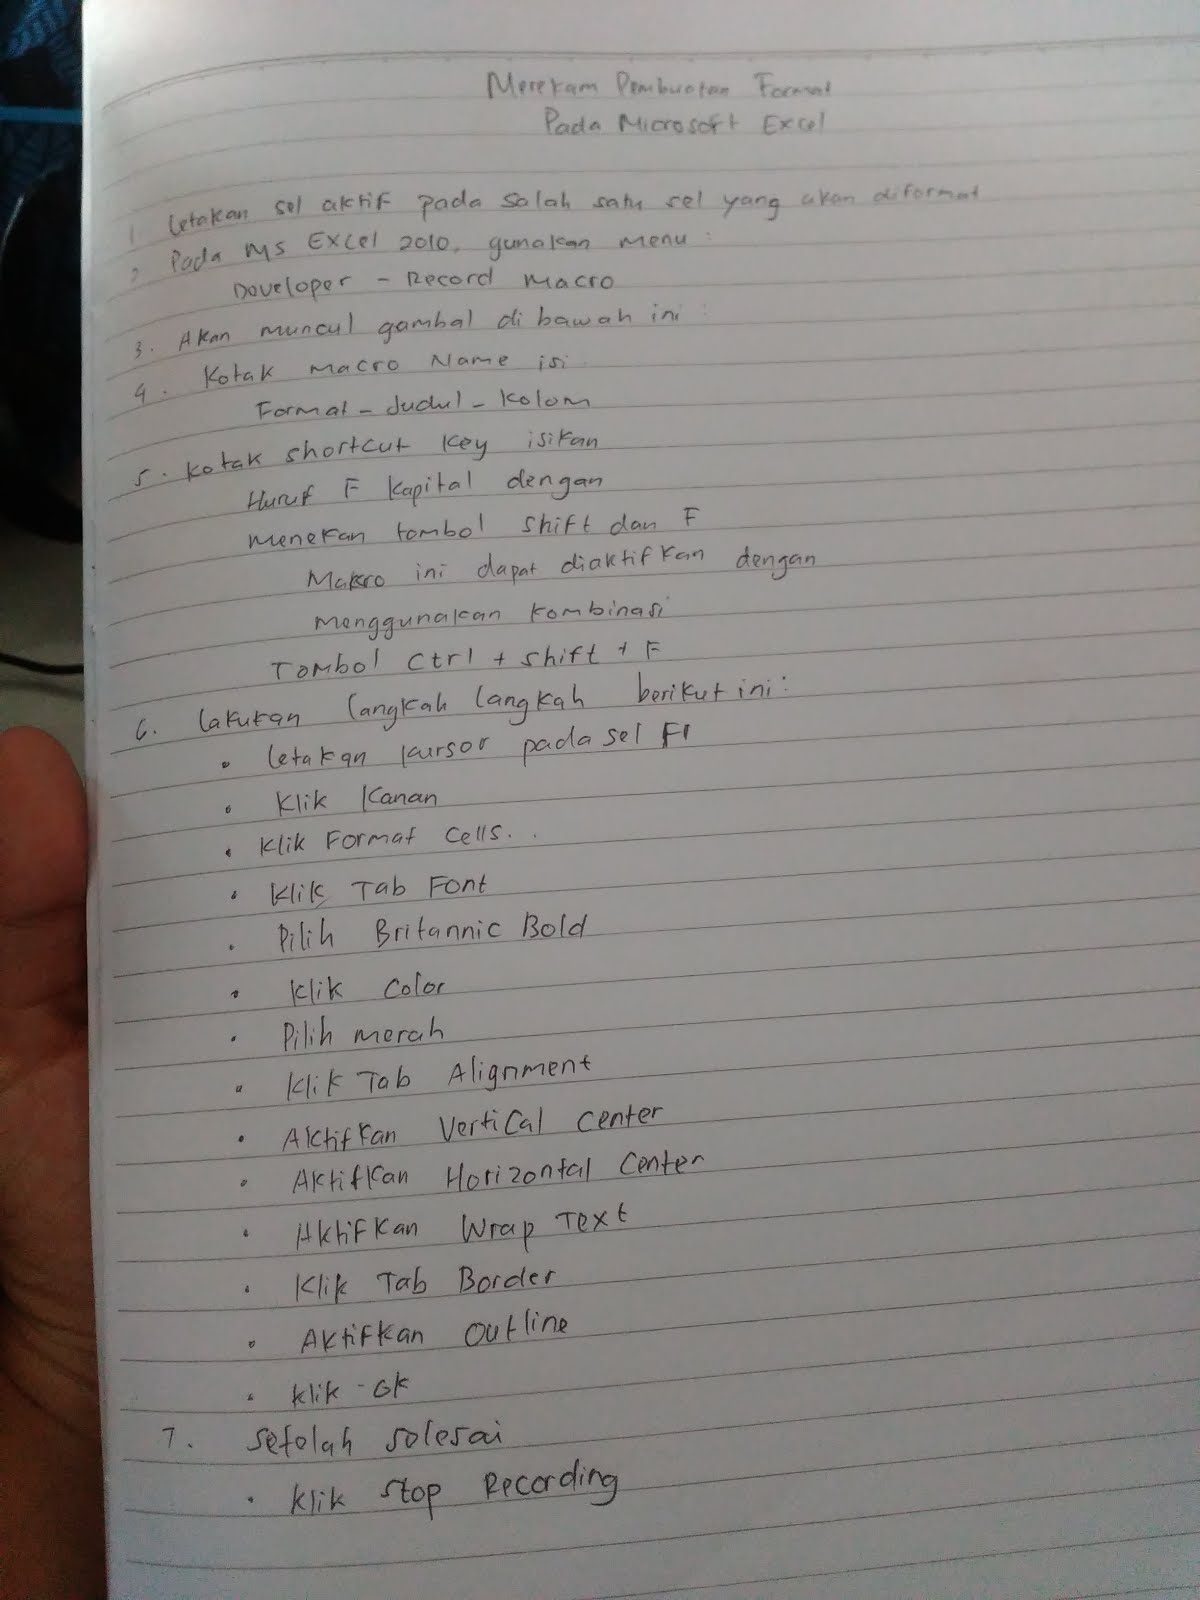 Merekam Pembuatan Format
Pada Microsoft Excel
1 Letakan sel aktif pada salah satu sel yang akan diformat
2 Pada MS Excel 2010, gunakan menu :
Doveloper - Record Macro
3. Akan muncul gambal di bawah ini :
4. Kotak Macro Name isi
Formal - Judul - Kolom
5. Kotak shortcut key isikan
Huruf F Kapital dengan
menekan tombol shift dan F
Makro ini dapat diaktifkan dengan
Menggunakan kombinasi
Tombol Ctrl + Shift + F
6. Lakukan langkah langkah berikut ini :
• Letakan kursor pada sel F1
• Klik Kanan
• Klik Format Cells. .
• Klik Tab Font
• Pilih Britannic Bold
• Klik Color
• Pilih merah
• Klik Tab Alignment
• Aktifkan Vertical Center
• Aktifkan Horizontal Center
• Aktifkan Wrap Text
• Klik Tab Border
• Aktifkan Outline
• Klik - Ok
7. Setolah solesai
• Klik Stop Recording